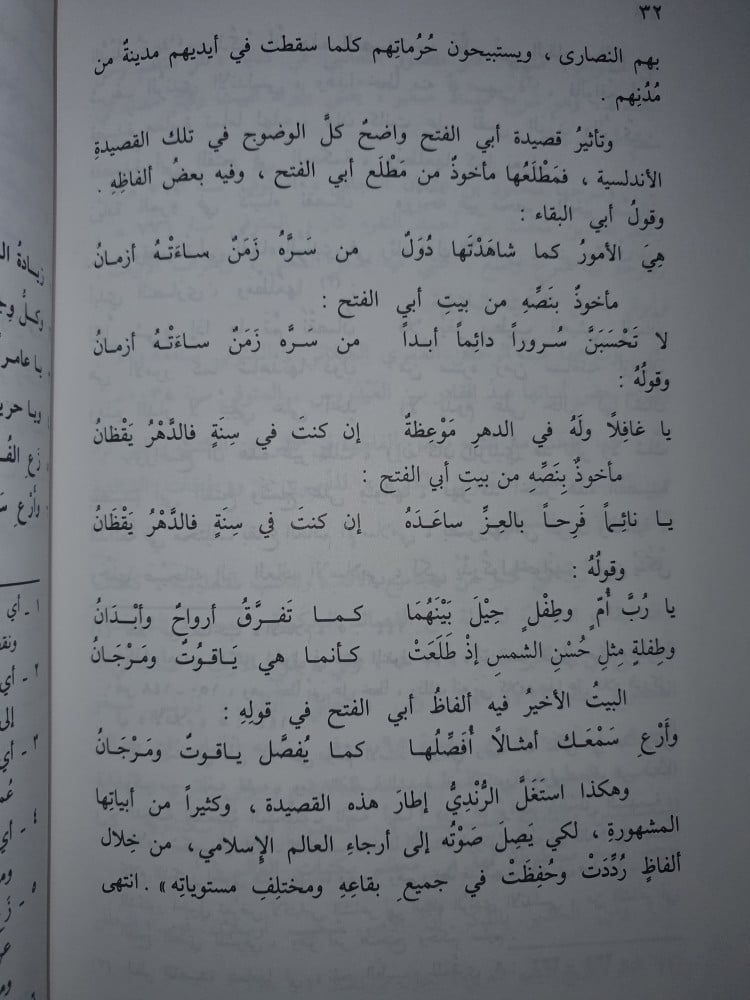 ٣٢
بهم النصارى ، ويستبيحون حُرُماتِهم كلما سقطت في أيديهم مدينةٌ من
مُدُنِهم .
وتأثيرُ قصيدة أبي الفتح واضحٌ كلَّ الوضوح في تلك القصيدةِ
الأندلسية ، فمَطْلَعُها مأخوذٌ من مَطْلَع أبي الفتح ، وفيه بعضُ ألفاظِهِ .
وقولُ أبي البقاء :
هِيَ الأمورُ كما شاهَدْتَها دُوَلٌ من سَرَّهُ زَمَنٌ ساءَتْهُ أزمانُ
مأخوذٌ بنَصِّهِ من بيتِ أبي الفتح :
لا تَحْسَبَنَّ سُروراً دائِماً أبداً من سَرَّه زَمَنٌ ساءَتْهُ أزمانُ
وقولُهُ :
يا غافِلًا ولَهُ في الدهرِ مَوْعِظةٌ إن كنتَ في سِنَةٍ فالدَّهْرُ يَقْظانُ
مأخوذٌ بِنَصِّهِ من بيتِ أبي الفتح :
يا نائِماً فَرِحاً بالعِزِّ ساعَدَهُ إن كنتَ في سِنَةٍ فالدَّهْرُ يَقْظَانُ
وقولُهُ :
يا رُبَّ أُمٍّ وطِفْلٍ حِيْلَ بَيْنَهُمَا كما تَفرَّقُ أرواحٌ وأبْدَانُ
وطِفلةٍ مِثلِ حُسْنِ الشمسِ إذْ طَلَعَتْ كأنما هي يَاقوُتٌ ومَرْجَانُ
البيتُ الأخيرُ فيه ألفاظُ أبي الفتح في قولِهِ :
وأَرْعِ سَمْعَك أمثالًا أُفَصِّلُها كما يُفصَّل ياقوتٌ ومَرْجَانُ
وهكذا استَغَلَّ الرُّنْدِيُّ إطارَ هذه القصيدة ، وكثيراً من أبياتِها
المشهورةِ ، لكي يَصِلَ صَوْتُه إلى أرجاءِ العالم الإِسلامي ، من خِلال
ألفاظٍ رُدِّدَتْ وحُفِظَتْ في جميعِ بقاعِهِ ومختلِفِ مستوياتِه » . انتهى